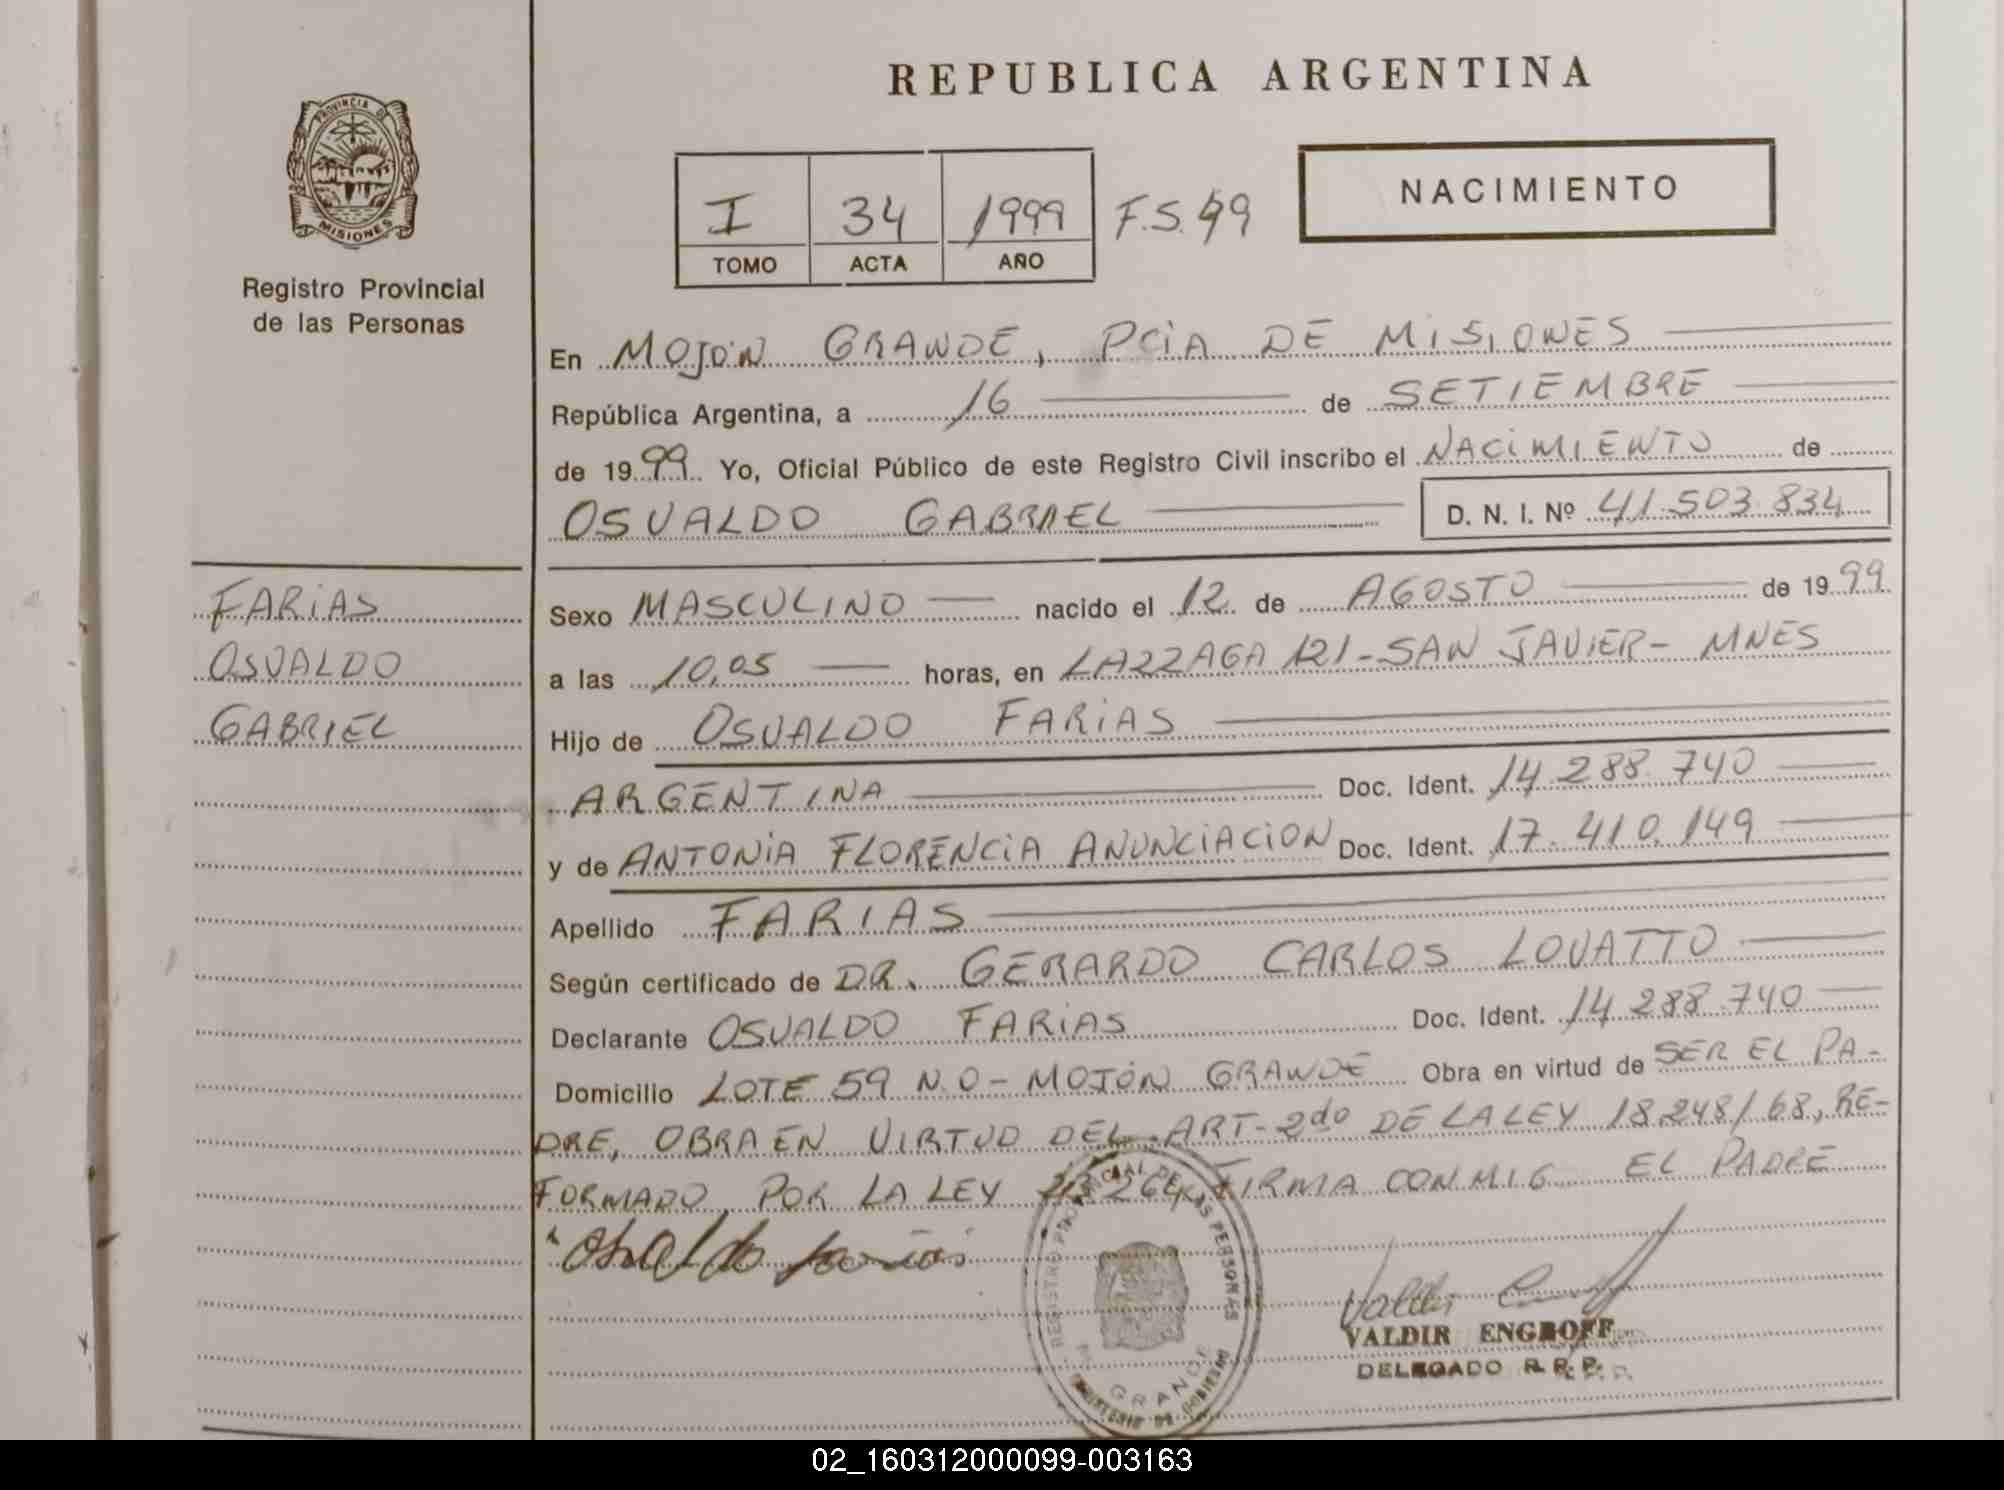 REPUBLICA ARGENTINA
PROVINCIA DE
MISIONES
Registro Provincial
de las Personas
I 34 1999 F.S. 49
TOMO ACTA AÑO
NACIMIENTO
En MOJON GRANDE, PCIA DE MISIONES
República Argentina, a 16 de SETIEMBRE
de 1999 Yo, Oficial Público de este Registro Civil inscribo el NACIMIENTO de
OSVALDO GABRIEL D. N. I. Nº 41.503.834
FARIAS
OSVALDO
GABRIEL
Sexo MASCULINO nacido el 12 de AGOSTO de 1999
a las 10,05 horas, en LAZZAGA 121-SAN JAVIER- MNES
Hijo de OSVALDO FARIAS
ARGENTINA Doc. Ident. 14.288.740
y de ANTONIA FLORENCIA ANUNCIACION Doc. Ident. 17.410.149
Apellido FARIAS
Según certificado de DR. GERARDO CARLOS LOVATTO
Declarante OSVALDO FARIAS Doc. Ident. 14.288.740
Domicilio LOTE 59 N.O- MOJON GRANDE Obra en virtud de SER EL PA-
DRE, OBRA EN VIRTUD DEL ART-2do DE LA LEY 18.248/68, RE-
FORMADO POR LA LEY 23.264, FIRMA CONMIG EL PADRE
Osvaldo Farias
REGISTRO PROVINCIAL DE LAS PERSONAS
GRANDE
MINISTERIO DE GOBIERNO
VALDIR ENGROFF
DELEGADO R. P. P.
02_160312000099-003163